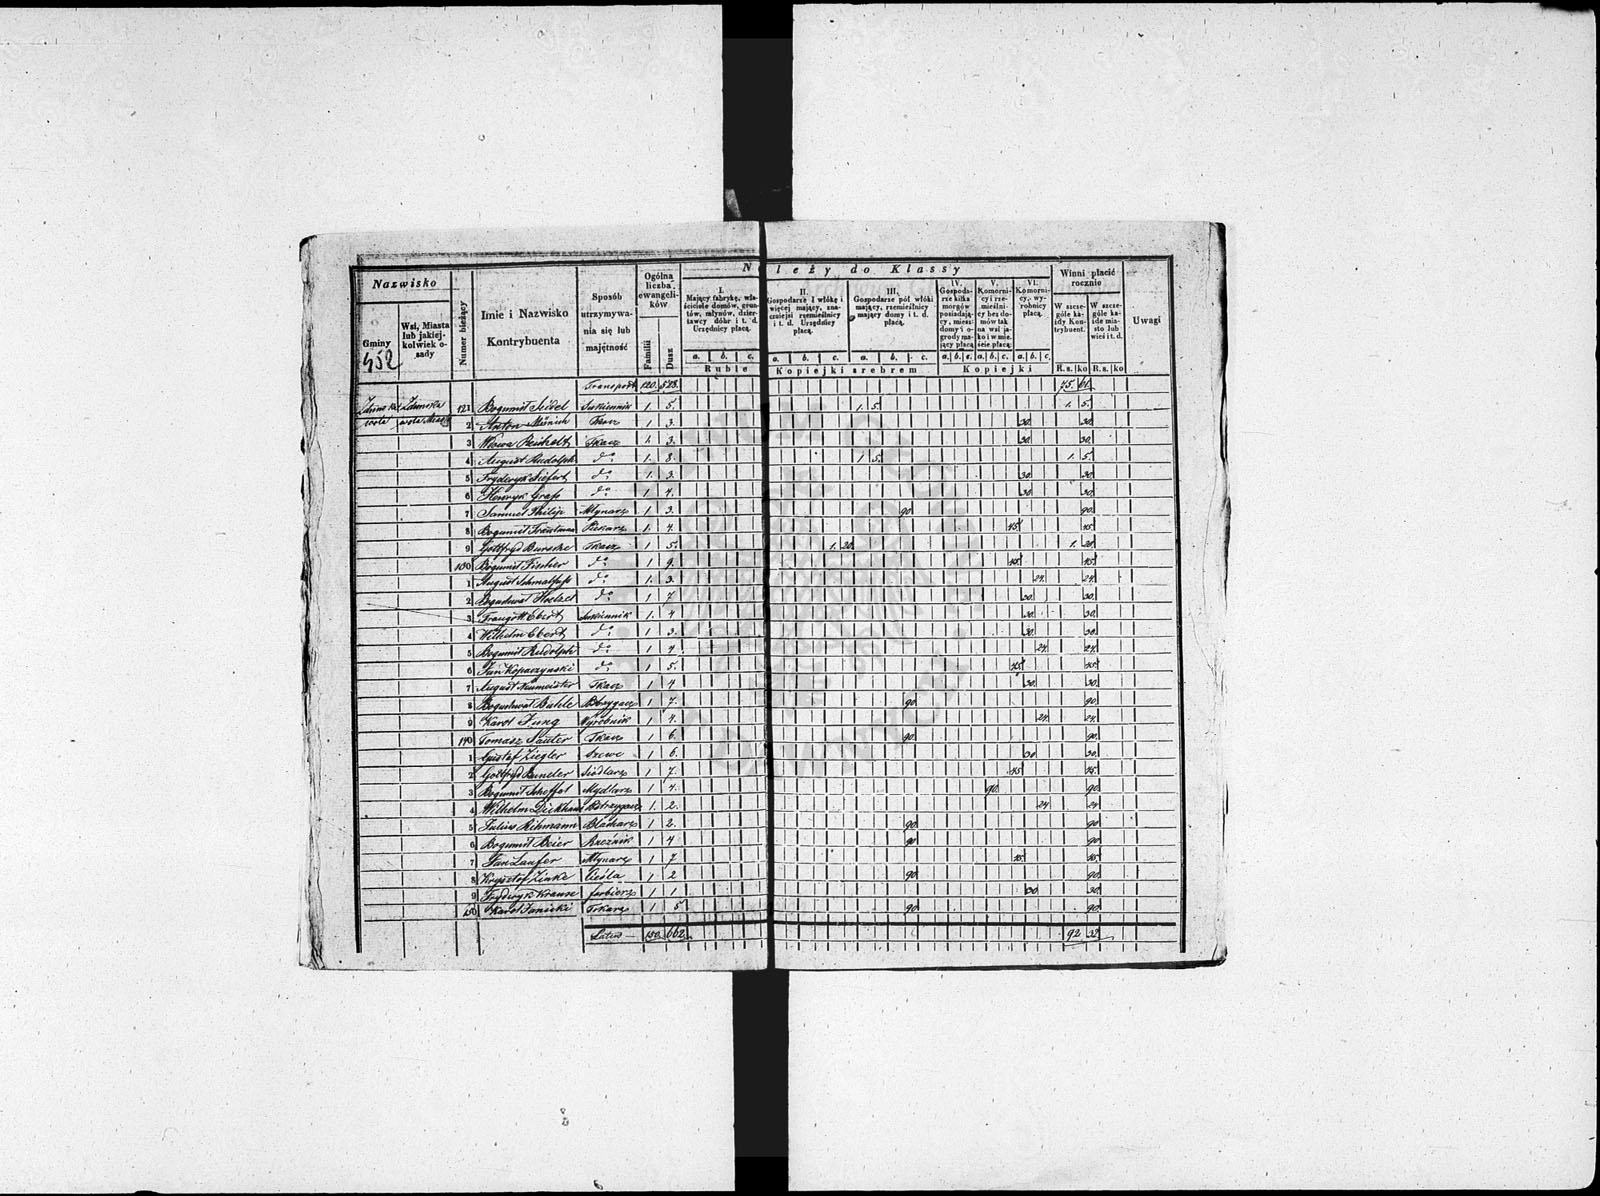 Nazwisko
Gminy
Wsi, Miasta lub jakiejkolwiek osady
Numer bieżący
Imie i Nazwisko Kontrybuenta
Sposób utrzymywania się lub majętność
Ogólna liczba ewangelików
Familii
Dusz
Należy do Klassy
I. Mający fabrykę, właściciele domów, gruntów, młynów, dzierżawcy dóbr i t. d. Urzędnicy płacą.
II. Gospodarze 1 włókę i więcej mający, znaczniejsi rzemieślnicy i t. d. Urzędnicy płacą.
III. Gospodarze pół włóki mający, rzemieślnicy mający domy i t. d. płacą.
IV. Gospodarze kilka morgów posiadający, mieszczdomy i ogrody mający płacą
V. Komornicy i rzemieślnicy bez domów tak na wsi jako i w mieście płacą
VI. Komornicy, wyrobnicy płacą.
Winni płacić rocznie
W szczególe każdy Kontrybuent.
W szczególe każde miasto lub wieś i t. d.
Uwagi
a. b. c. a. b. c. a. b. c. a. b. c. a. b. c. a. b. c.
Ruble Kopiejki srebrem Kopiejki R. s. ko R. s. ko
452
Transport 120. 528. 75. 61.
Zduńska wola Zduńska wola Miasto 121 Bogumił Seidel Sukiennik 1. 5. 1. 5. 1. 5.
2 Anton Münich Tkacz 1 3. 30. 30.
3 Reichelt Tkacz 1. 3. 30. 30.
4 August Rudolph do 1. 8. 1 5. 1. 5.
5 Fryderyk Siefert do 1. 3. 30. 30.
6 Henryk Grass do 1 4. 30. 30.
7 Samuel Philip Młynarz 1 3. 90. 90.
8 Bogumił Trautman Piekarz 1. 4. 45. 45.
9 Gottfryd Burscke Tkacz 1 5. 1. 20. 1. 20.
130 Bogumił Fischer do 1 9. 45. 45.
1 August Schmalfuss do 1. 3. 24. 24.
2 Bogusława Hoelzel do 1 7 30. 30.
3 Traugott Ebert Sukiennik 1. 4 30. 30.
4 Wilhelm Ebert do 1 3. 30. 30.
5 Bogumił Rudolph do 1 4 24. 24.
6 Jan Kopaczynski do 1 5. 45. 45.
7 August Neumeister Tkacz 1 4 30. 30.
8 Bogusława Buhle Postrzygacz 1 7. 90. 90.
9 Karol Jung Wyrobnik 1 4. 24. 24.
140 Tomasz Sauter Tkacz 1 6. 90. 90.
1 Gustaf Ziegler Szewc 1 6. 30 30.
2 Gottfryd Siodlarz 1 7. 45. 45.
3 Bogumił Scheffel Mydlarz 1 4. 90. 90.
4 Wilhelm Postrzygacz 1. 2. 24 24
5 Julius Rihmann Blacharz 1 2. 90. 90
6 Bogumił Beier Rzeźnik 1 4 90 90
7 Jan Laufer Młynarz 1 7 45 45
8 Krysztof Zinke Cieśla 1 2 90. 90.
9 Fryderyk Krause farbierz 1 1 30. 30.
150 Karol Janicki Tkacz 1 5 90. 90.
Latus — 150. 662. 92 32.